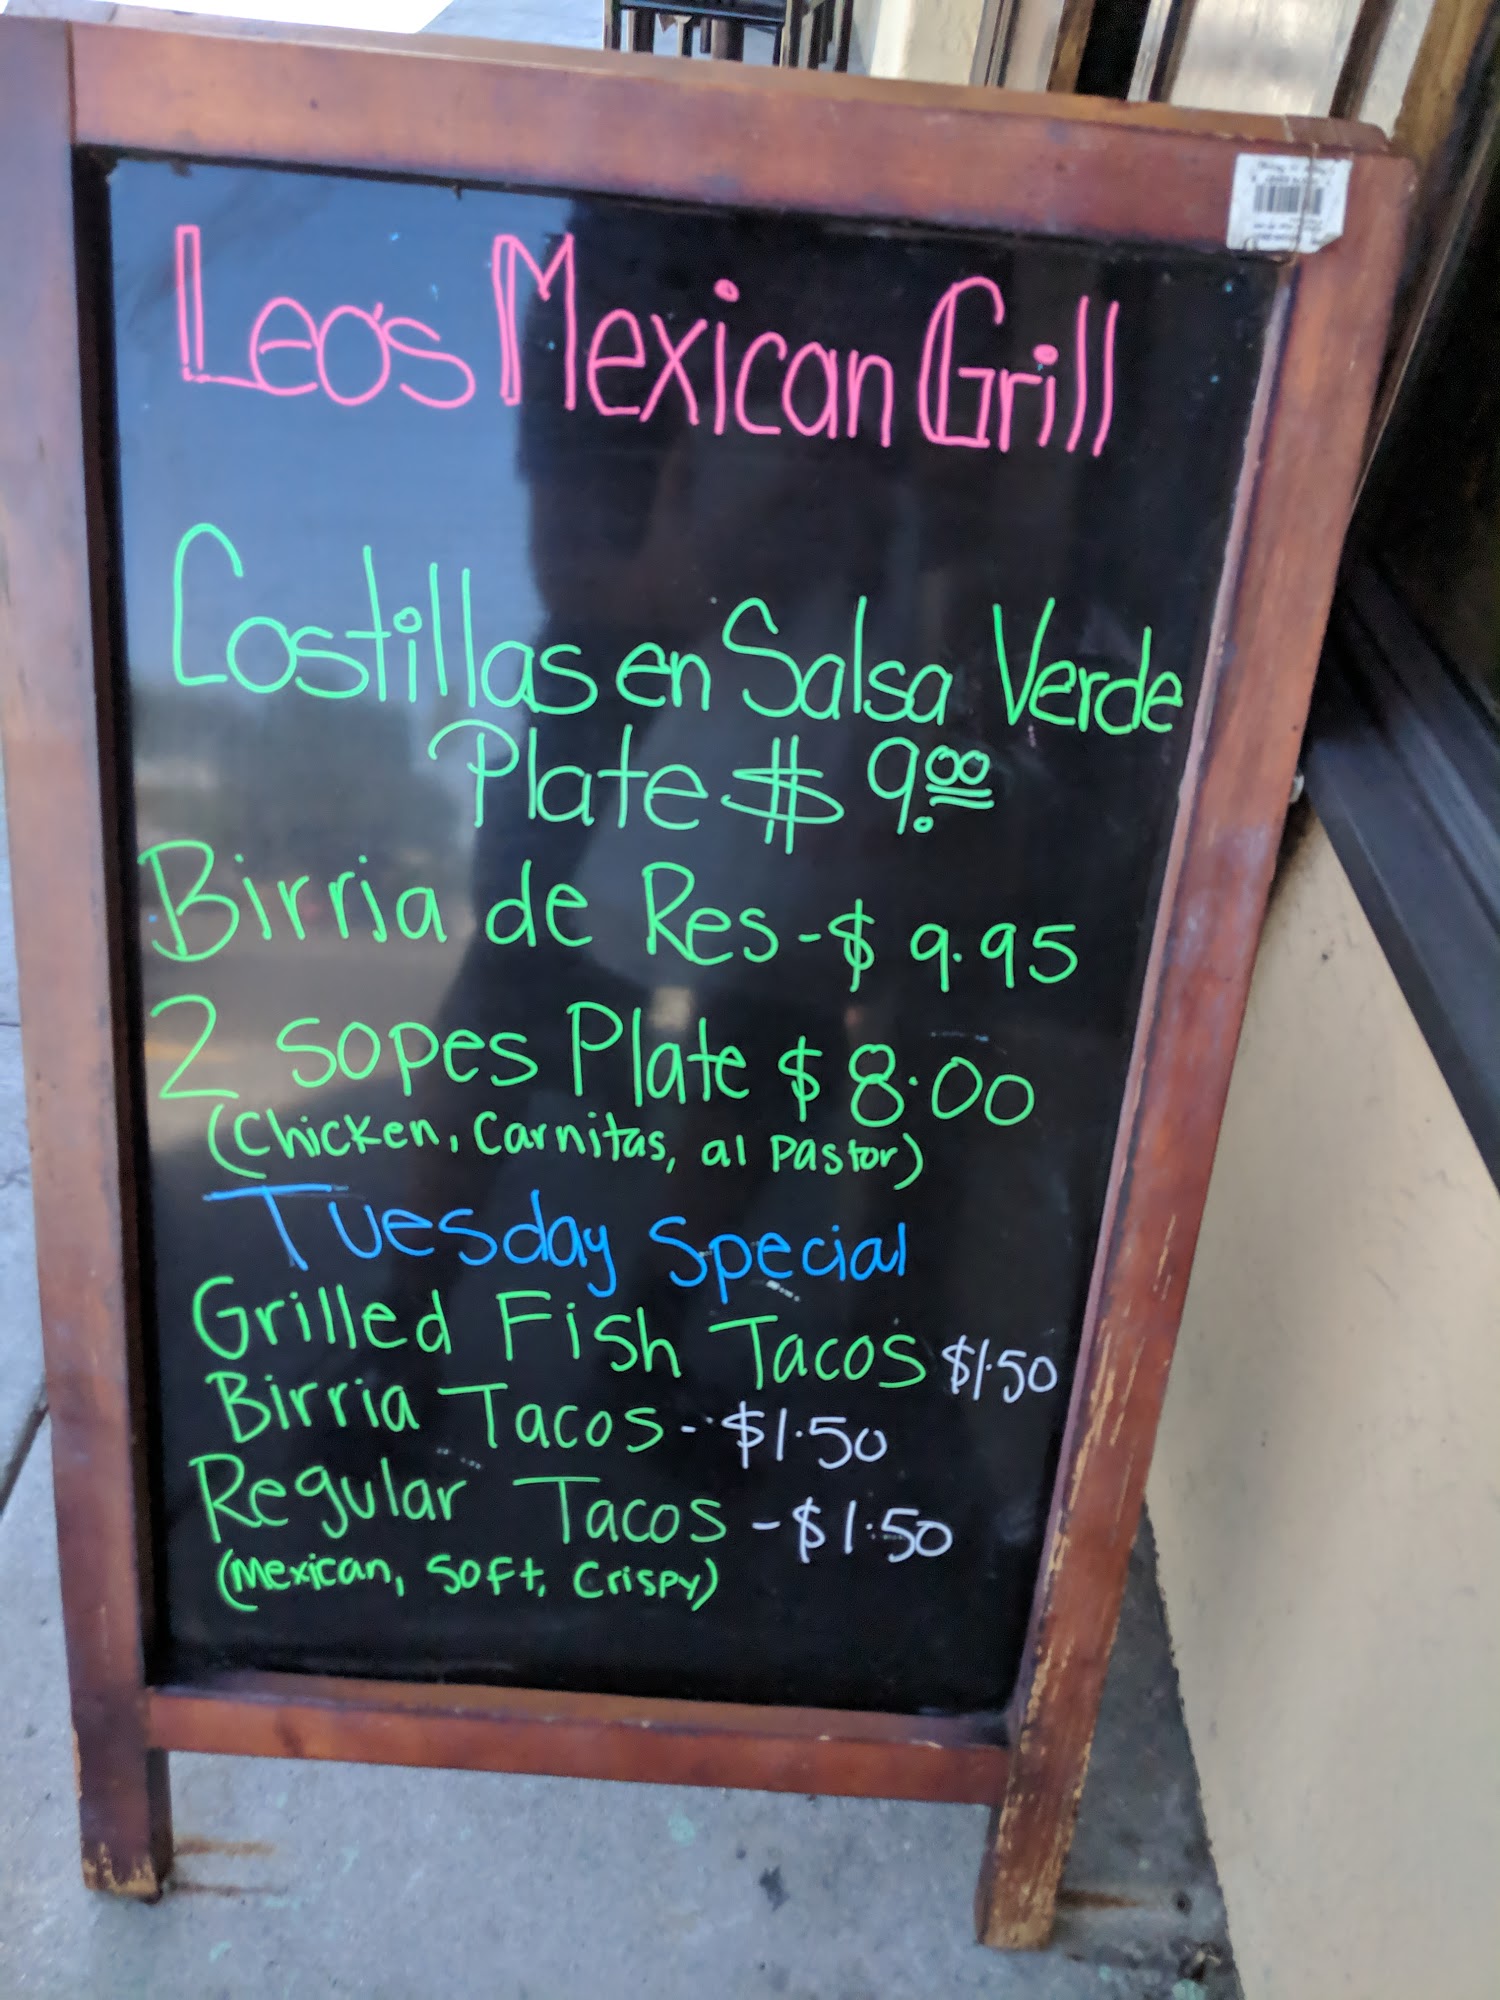 Leo's Mexican Grill
Costillas en Salsa Verde
Plate $ 9.00
Birria de Res - $ 9.95
2 sopes Plate $ 8.00
(Chicken, Carnitas, al Pastor)
Tuesday Special
Grilled Fish Tacos $1.50
Birria Tacos - $1.50
Regular Tacos - $1.50
(Mexican, Soft, Crispy)